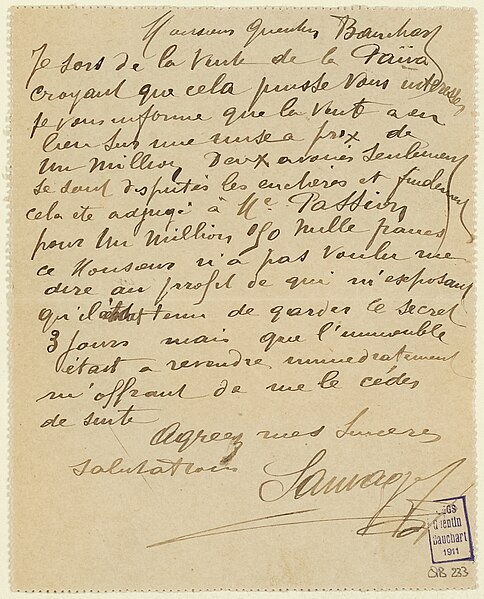 Monsieur Quentin Bauchart
Je sors de la Vente de la Païva
croyant que cela puisse vous intéresser
je vous informe que la Vente a eu
lieu sur une mise a prix de
Un Million, Deux avoués seulement
se sont disputés les enchères et finalement
cela été adjugé à Me Passion
pour Un Million 050 Mille francs
ce Monsieur n'a pas voulu me
dire au profit de qui m'exposant
qu'il était tenu de garder le secret
3 jours mais que l'immeuble
était a revendre immediatement
m'offrant de me le céder
de suite
Agreez mes Sinceres
Salutations
Sauvage
LEGS
Quentin
Bauchart
1911
QB 233